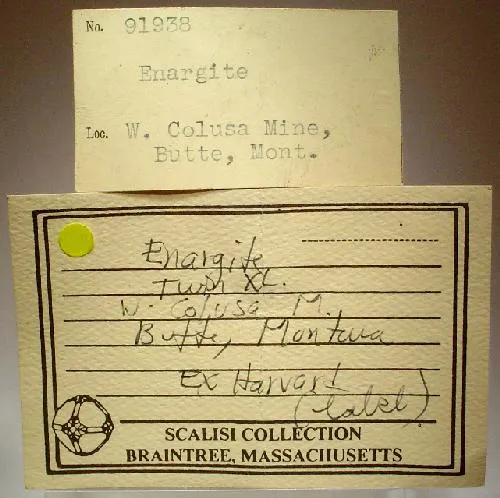 No. 91938
Enargite
Loc. W. Colusa Mine,
Butte, Mont.
Enargite
Twin XL.
W. Colusa M.
Butte, Montana
Ex Harvard
(label)
SCALISI COLLECTION
BRAINTREE, MASSACHUSETTS